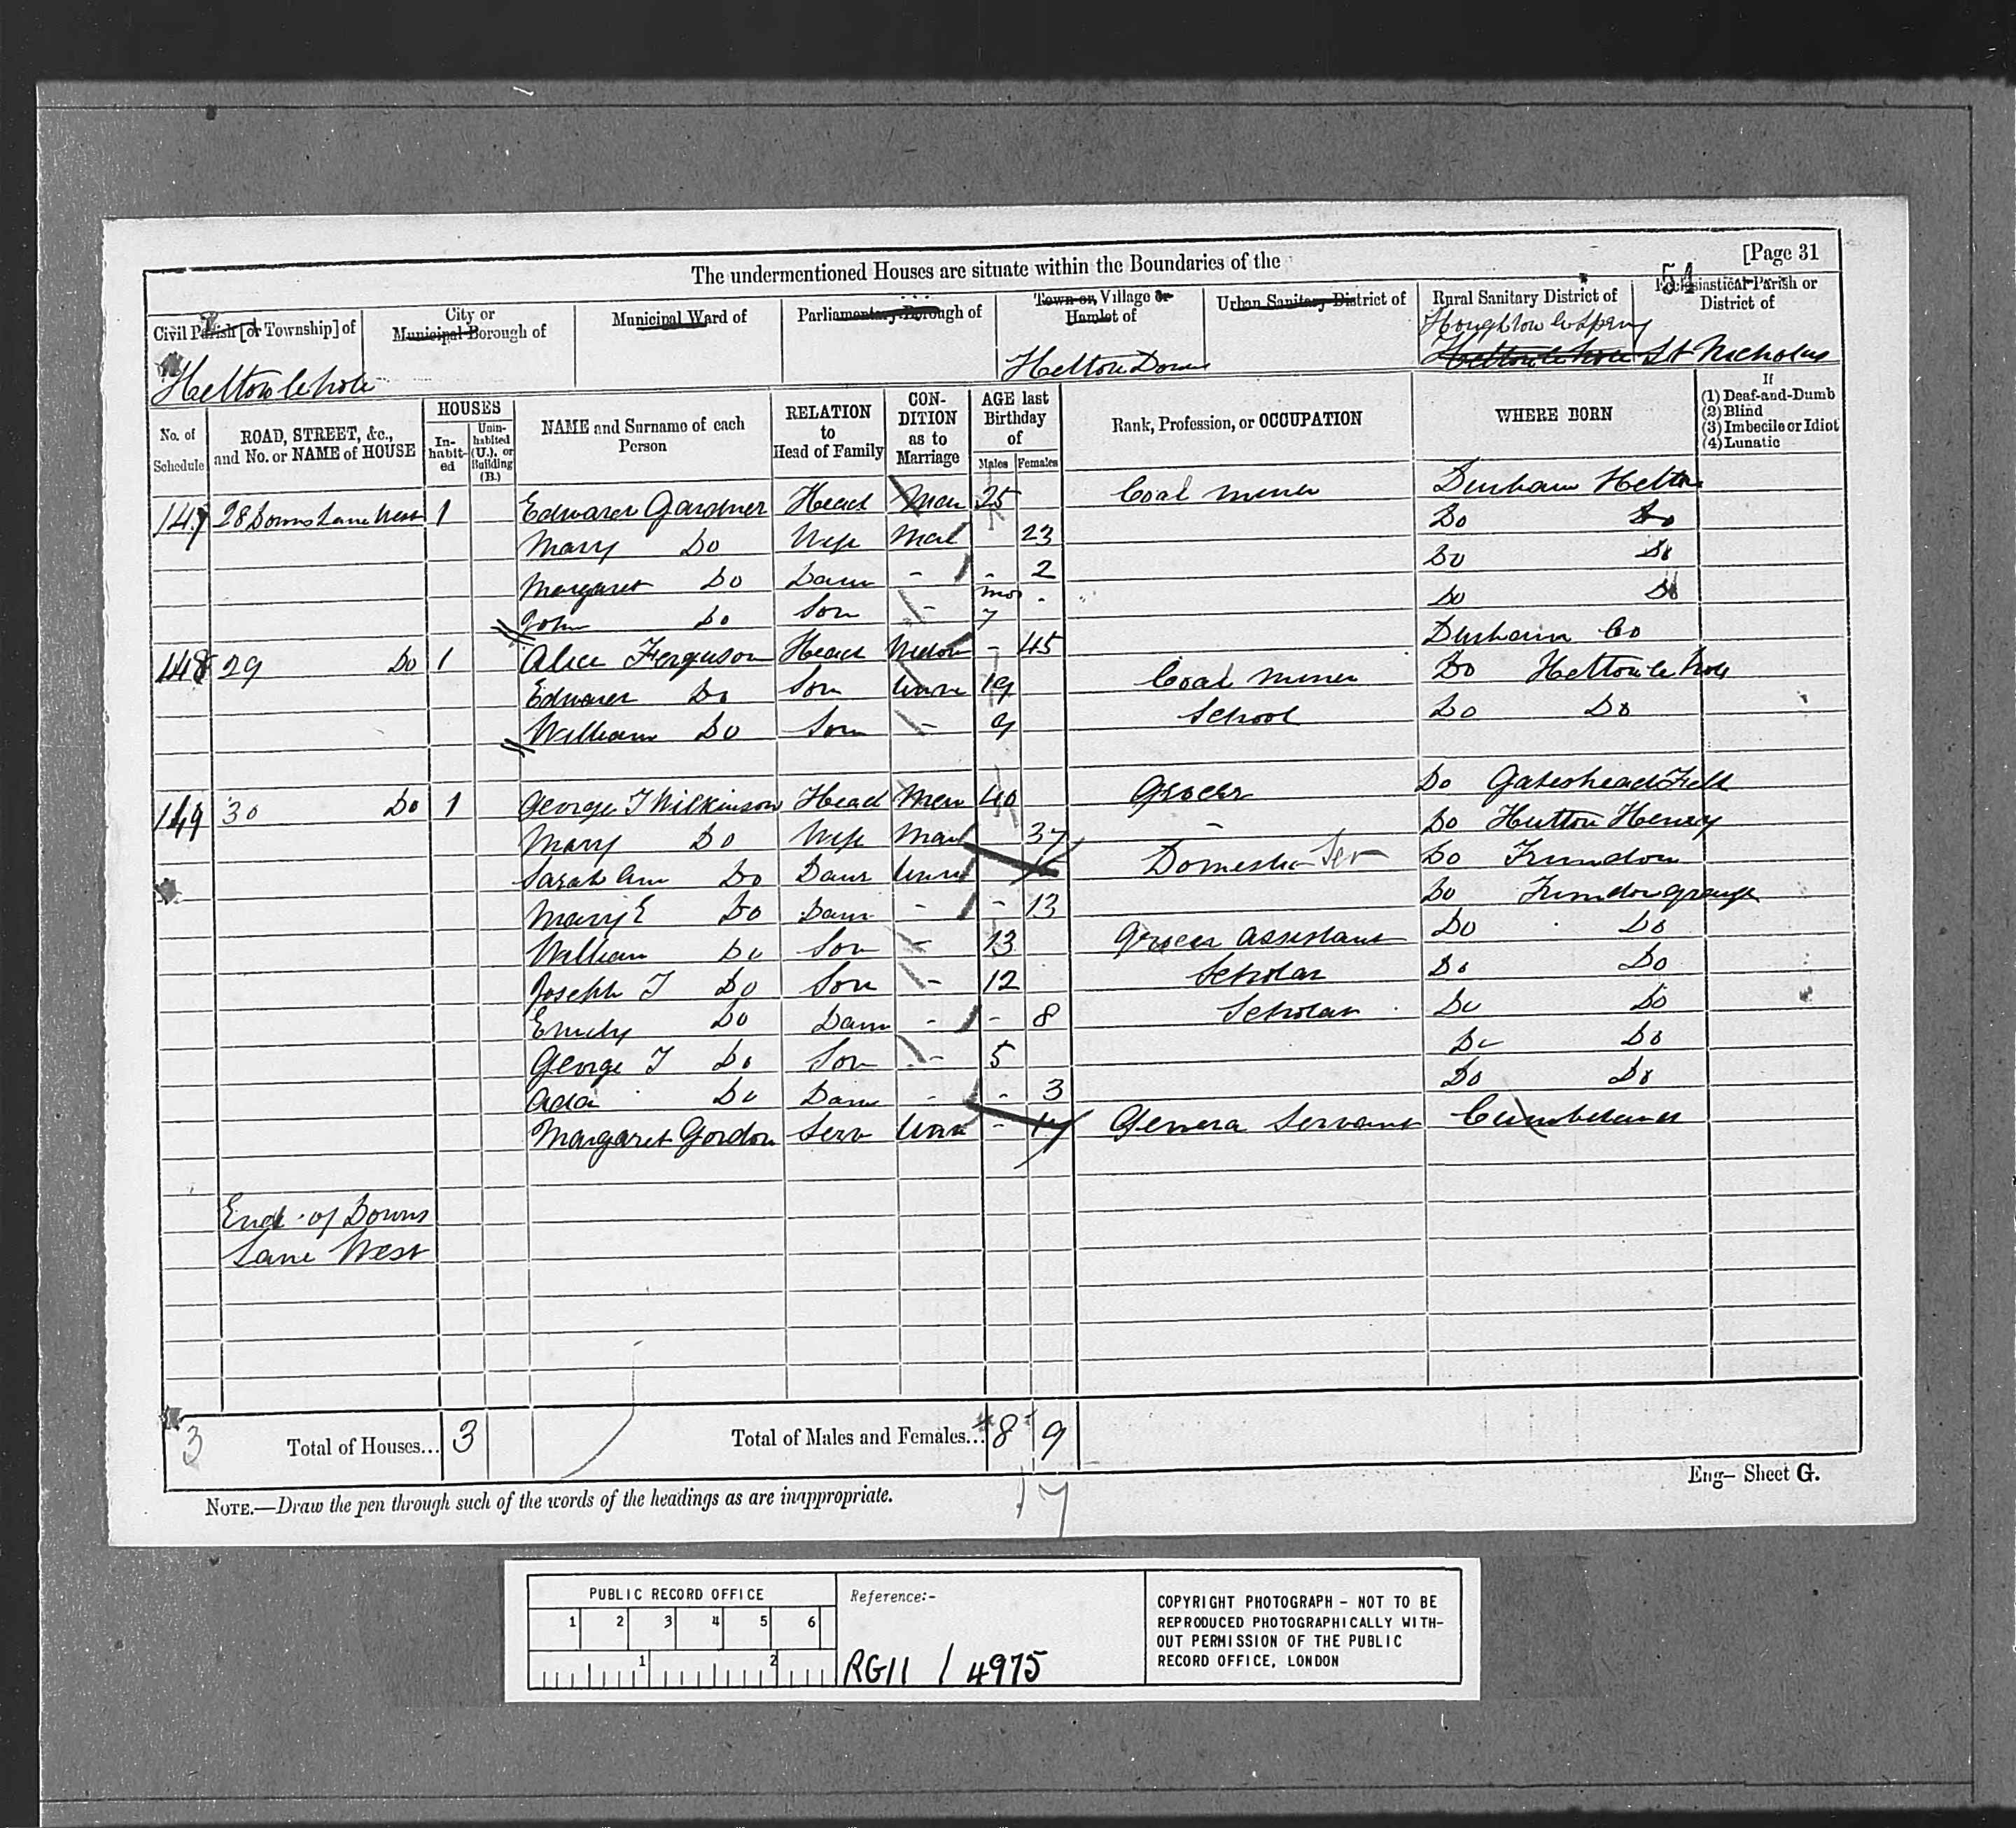 [Page 31
The undermentioned Houses are situate within the Boundaries of the
54
Civil Parish [or Township] of
City or Municipal Borough of
Municipal Ward of
Parliamentary Borough of
Town or Village or Hamlet of
Urban Sanitary District of
Rural Sanitary District of
Ecclesiastical Parish or District of
Hetton le hole
Hetton Downs
Houghton le Spring
Hetton le hole
St Nicholas
No. of Schedule
ROAD, STREET, &c., and No. or NAME of HOUSE
HOUSES
In-habit-ed
Unin-habited (U.), or Building (B.)
NAME and Surname of each Person
RELATION to Head of Family
CON-DITION as to Marriage
AGE last Birthday of
Males Females
Rank, Profession, or OCCUPATION
WHERE BORN
If
(1) Deaf-and-Dumb
(2) Blind
(3) Imbecile or Idiot
(4) Lunatic
147 28 Downs Lane West 1 Edward Gardner Head Mar 25 Coal Miner Durham Hetton
Mary Do Wife Mar 23 Do Do
Margaret Do Daur - - 2 Do Do
John Do Son - mos 7 - Do Do
148 29 Do 1 Alice Ferguson Head Widow - 45 Durham Co
Edward Do Son Unm 19 Coal Miner Do Hetton le hole
William Do Son - 9 School Do Do
149 30 Do 1 George T Wilkinson Head Mar 40 Grocer Do Gateshead Fell
Mary Do Wife Mar 37 - Do Hutton Henry
Sarah Ann Do Daur Unm Domestic Ser Do Trimdon
Mary E Do Daur - - 13 Do Trimdon Grange
William Do Son - 13 Grocer Assistant Do Do
Joseph T Do Son - 12 Scholar Do Do
Emily Do Daur - - 8 Scholar Do Do
George T Do Son - 5 Do Do
Ada Do Daur - - 3 Do Do
Margaret Gordon Serv Unm - 17 Genera Servant Cumberland
End of Downs
Lane West
3 Total of Houses... 3 Total of Males and Females... 8 9
17
Eng— Sheet G.
NOTE.—Draw the pen through such of the words of the headings as are inappropriate.
PUBLIC RECORD OFFICE
1 2 3 4 5 6
1 2
Reference:-
RG11 / 4975
COPYRIGHT PHOTOGRAPH - NOT TO BE
REPRODUCED PHOTOGRAPHICALLY WITH-
OUT PERMISSION OF THE PUBLIC
RECORD OFFICE, LONDON